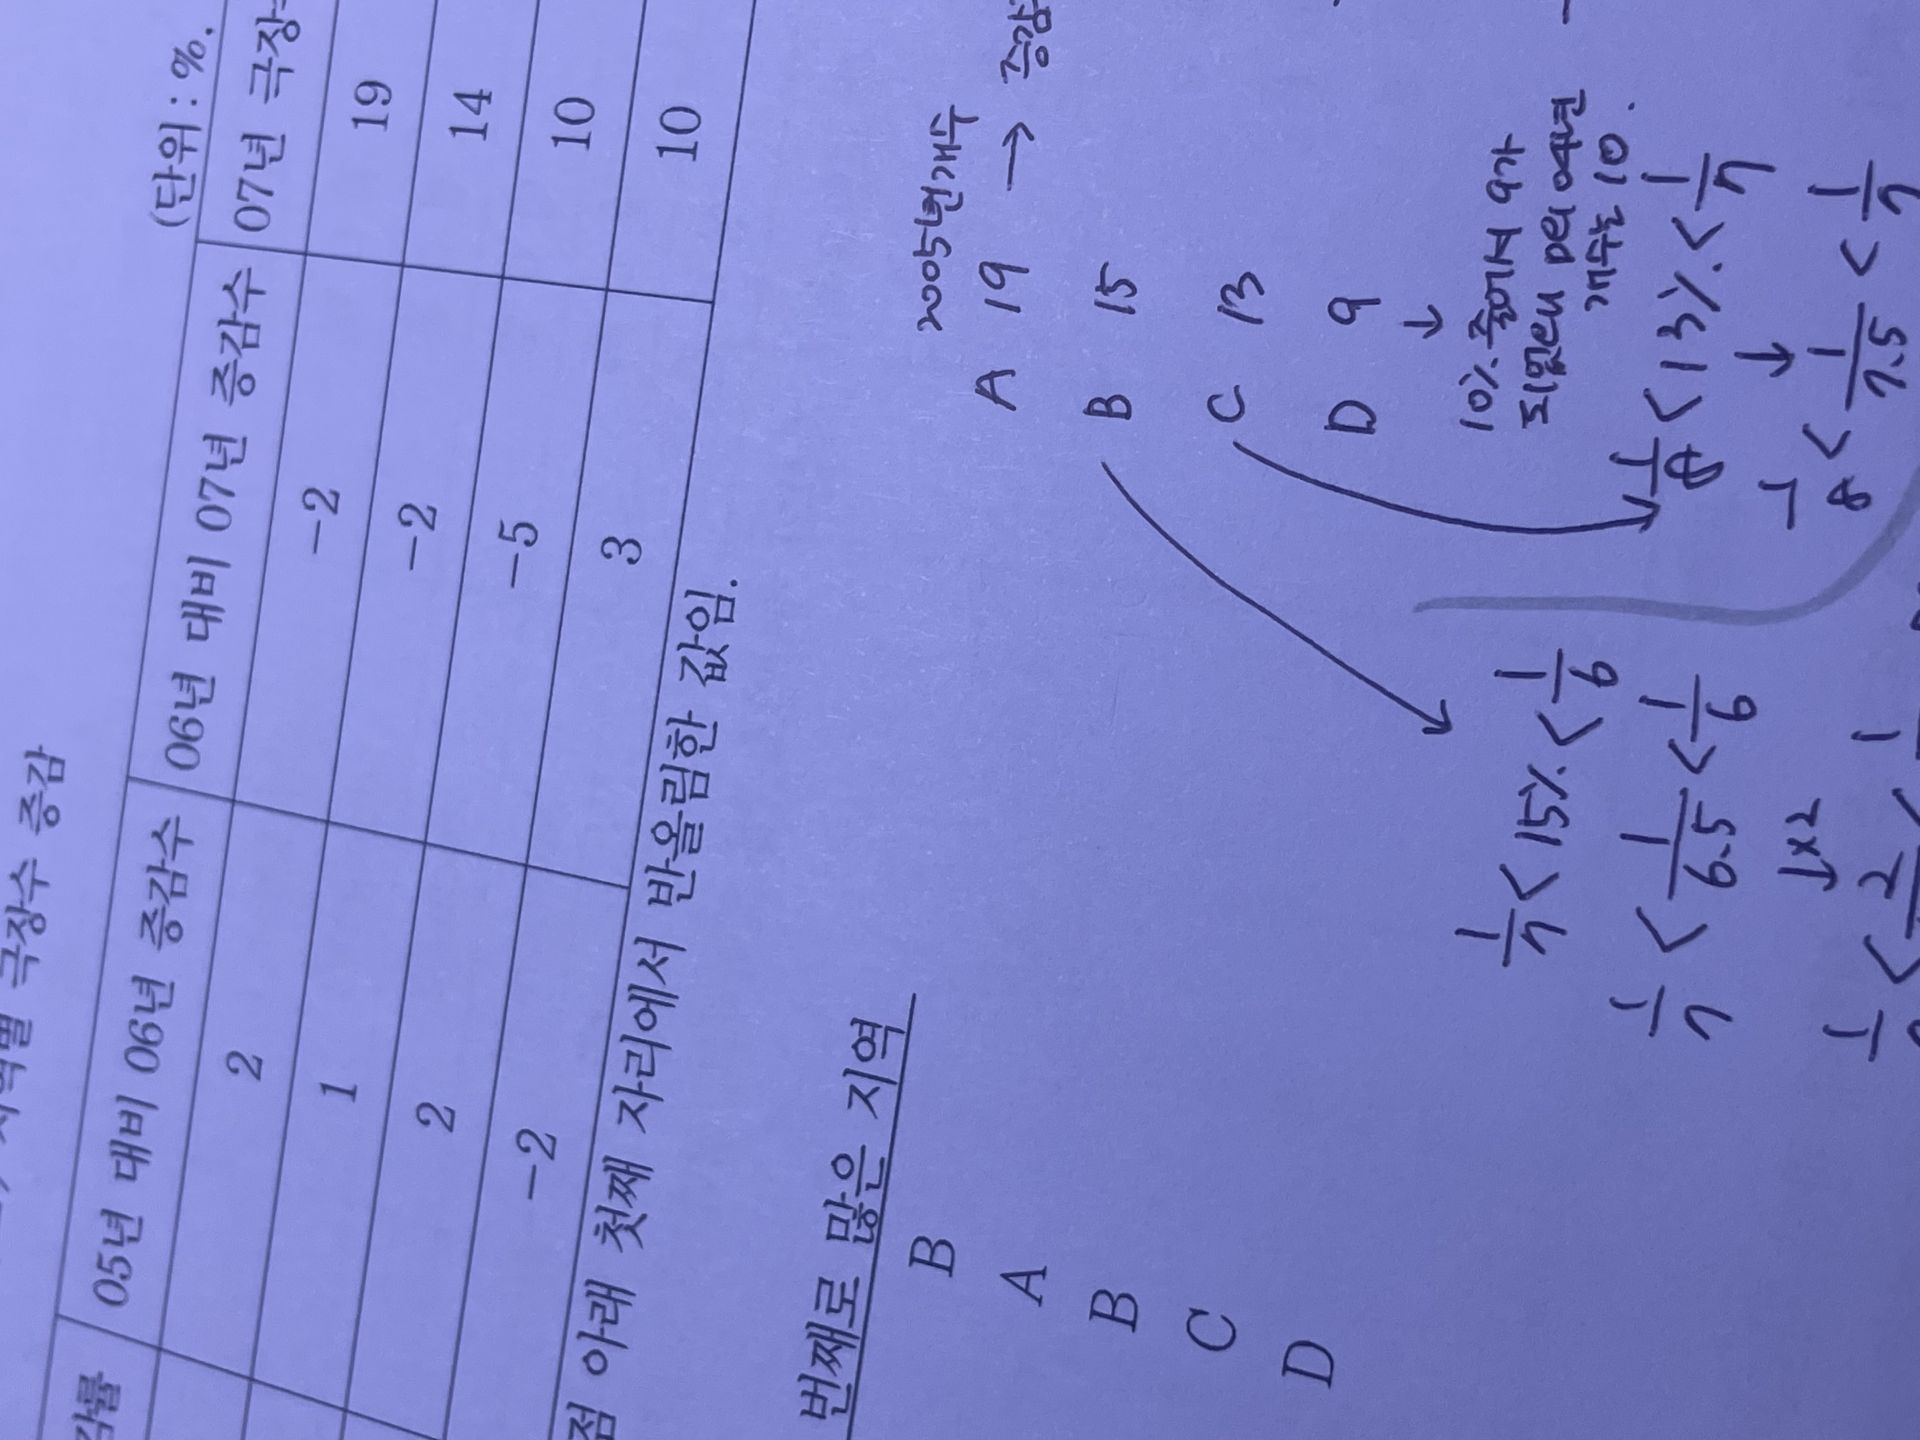 지역별 극장수 증감
(단위 : %,
05년 대비 06년 증감수 06년 대비 07년 증감수 07년
2 -2 19
1 -2 14
2 -5 10
-2 3 10
점 아래 첫째 자리에서 반올림한 값임.
번째로 많은 지역
B
A
B
C
D
2005년개수
A 19 →
B 15
C 13
D 9
↓
10% 줄여서 9가
되었으니
개수는 10.
1/8 < 13% < 1/7
↓
1/8 < 1/7.5 < 1/7
1/7 < 15% < 1/6
1/7 < 1/6.5 < 1/6
↓×2